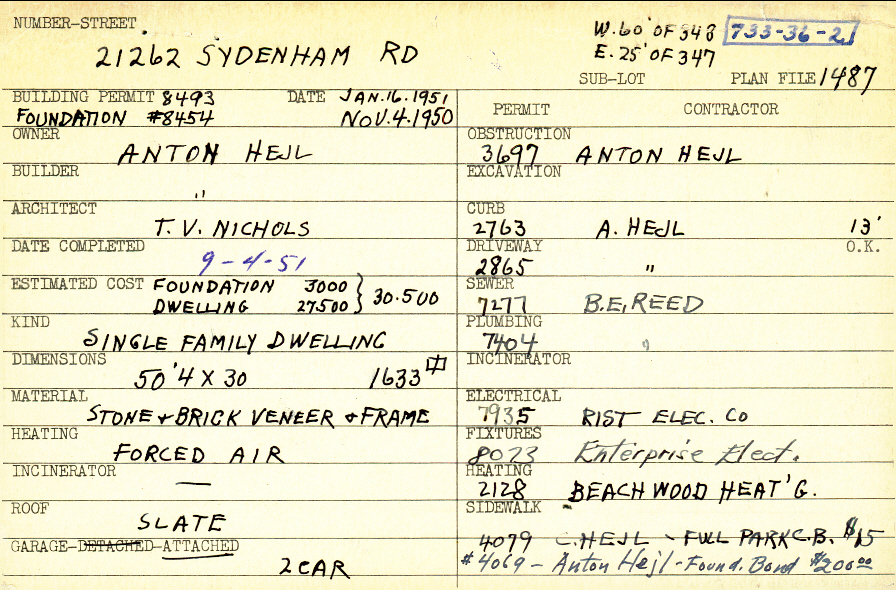 NUMBER-STREET
21262 SYDENHAM RD
W. 60' OF 343
E. 25' OF 347
733-36-2
SUB-LOT PLAN FILE 1487
BUILDING PERMIT 8493 DATE JAN. 16. 1951
FOUNDATION #8454 NOV. 4. 1950
OWNER
ANTON HEJL
BUILDER
"
ARCHITECT
T. V. NICHOLS
DATE COMPLETED
9-4-51
ESTIMATED COST FOUNDATION 3000
DWELLING 27500 } 30.500
KIND
SINGLE FAMILY DWELLING
DIMENSIONS
50'4 X 30 1633
MATERIAL
STONE + BRICK VENEER + FRAME
HEATING
FORCED AIR
INCINERATOR
—
ROOF
SLATE
GARAGE-DETACHED-ATTACHED
2 CAR
PERMIT CONTRACTOR
OBSTRUCTION
3697 ANTON HEJL
EXCAVATION
CURB
2763 A. HEJL 13'
DRIVEWAY O.K.
2865 "
SEWER
7277 B.E. REED
PLUMBING
7404 "
INCINERATOR
ELECTRICAL
7935 RIST ELEC. CO
FIXTURES
8023 Enterprise Elect.
HEATING
2128 BEACHWOOD HEAT'G.
SIDEWALK
4079 C. HEJL - FULL PARK C.B. $15
#4069 - Anton Hejl - Found. Bond $200.00